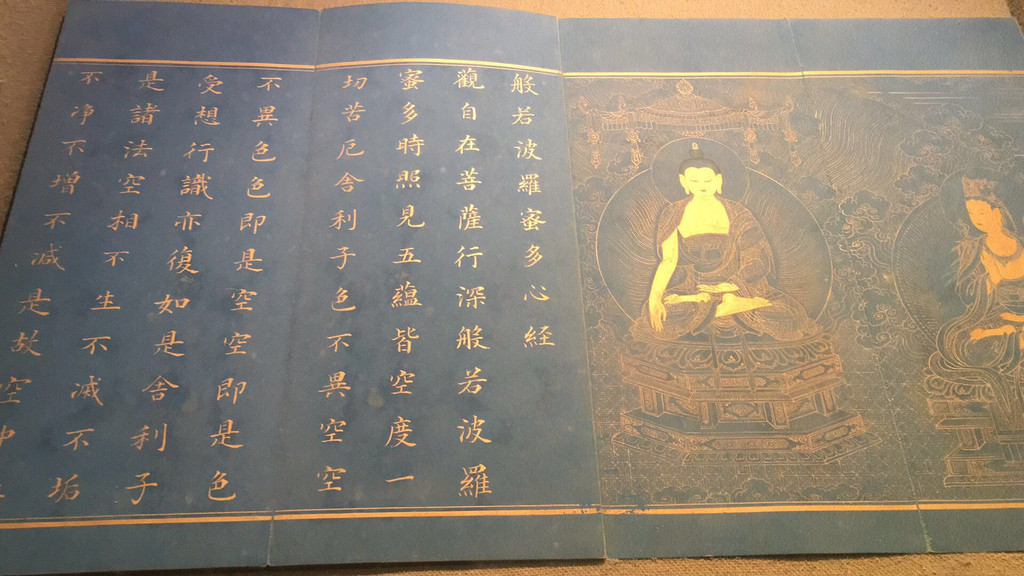 般若波羅蜜多心経
觀自在菩薩行深般若波羅
蜜多時照見五蘊皆空度一
切苦厄舍利子色不異空空
不異色色即是空空即是色
受想行識亦復如是舍利子
是諸法空相不生不滅不垢
不净不增不減是故空中